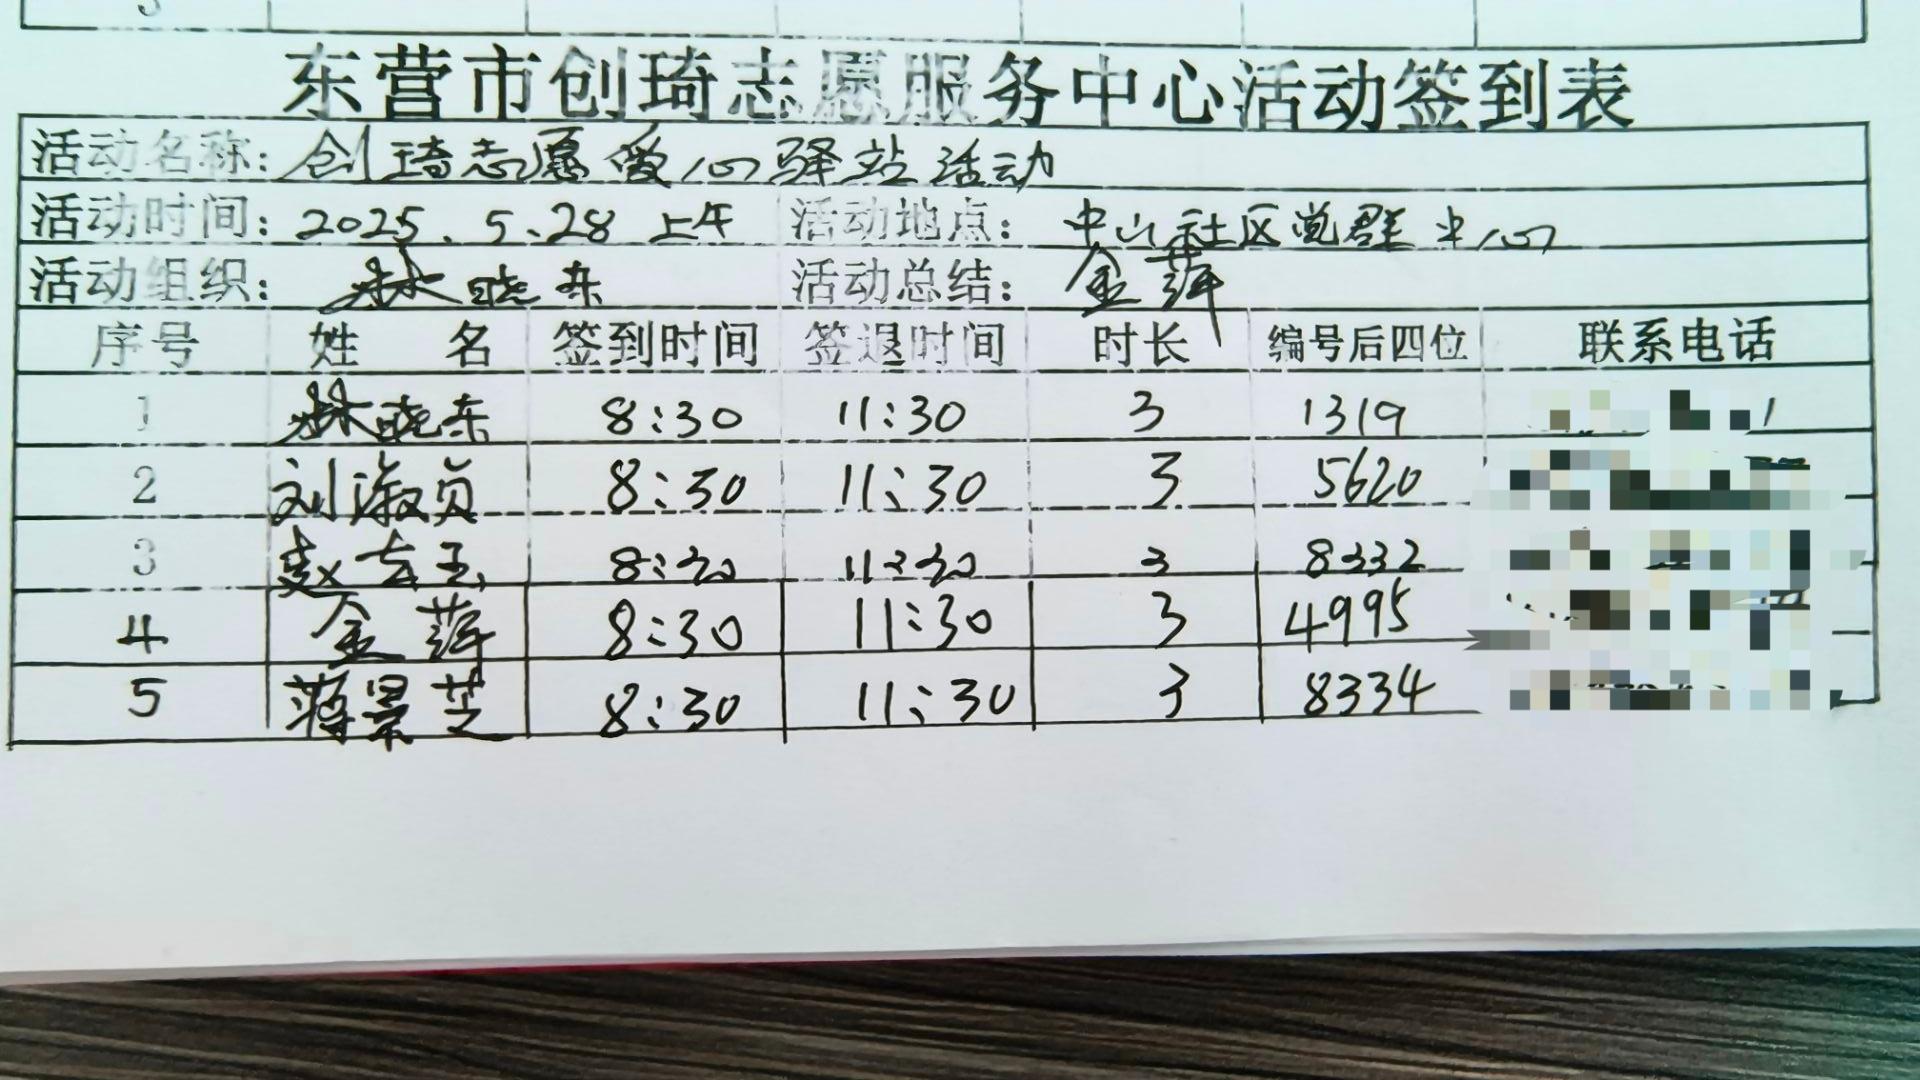 东营市创琦志愿服务中心活动签到表
活动名称: 创琦志愿爱心驿站活动
活动时间: 2025.5.28 上午 活动地点: 中山社区党群中心
活动组织: 林晓东 活动总结: 金萍
序号 姓名 签到时间 签退时间 时长 编号后四位 联系电话
1 林晓东 8:30 11:30 3 1319
2 刘淑贞 8:30 11:30 3 5620
3 赵玉 8:30 11:30 3 8332
4 金萍 8:30 11:30 3 4995
5 蒋景芝 8:30 11:30 3 8334